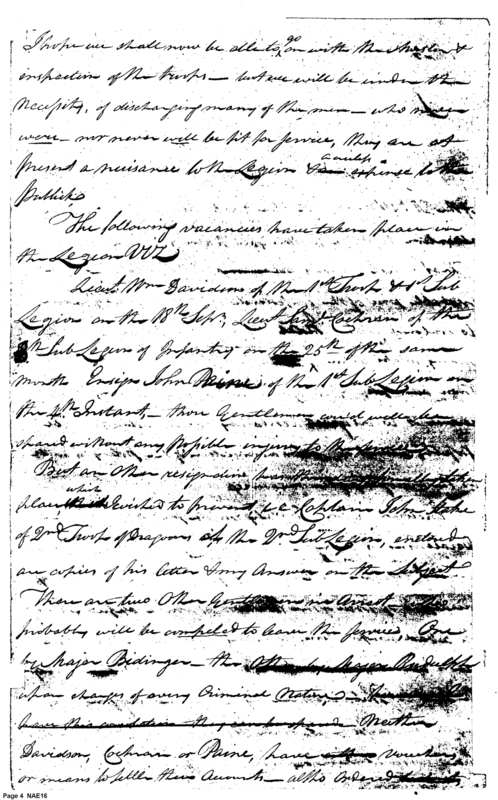 I hope we shall now be able to go on with the Muster &
inspection of the troops — but we will be under the
Necessity, of discharging many of the men — who never
were — nor never will be fit for service, they are at
present a nuisance to the Legion & an useless expense to the
Publick
The following vacancies have taken place in
the Legion VIZ
Lieut. Wm Davidson of the 1st Troop & 1st Sub
Legion on the 18th Sepr, Lieut Cochran of the
Sub Legion of Infantry on the 25th of the same
month Ensign John Paine of the 1st Sub Legion on
the 4th Instant, — those Gentlemen could well be
spared without any possible injury to the
But an other resignation
place which I wished to prevent, i.e. Captain John
of 2nd Troop of Dragoons of the 2nd Sub Legion, enclosed
are copies of his letter & my Answer on the Subject
There are two Other Gentlemen in Arrest
probably will be compeled to leave the service, One
by Major Bidinger — the Other by Major
upon charges of a very Criminal Nature
have this they can be spared Neither
Davidson, Cochran or Paine, have vouchers
or means to settle their Accounts — altho Ordered
Page 4 NAE16